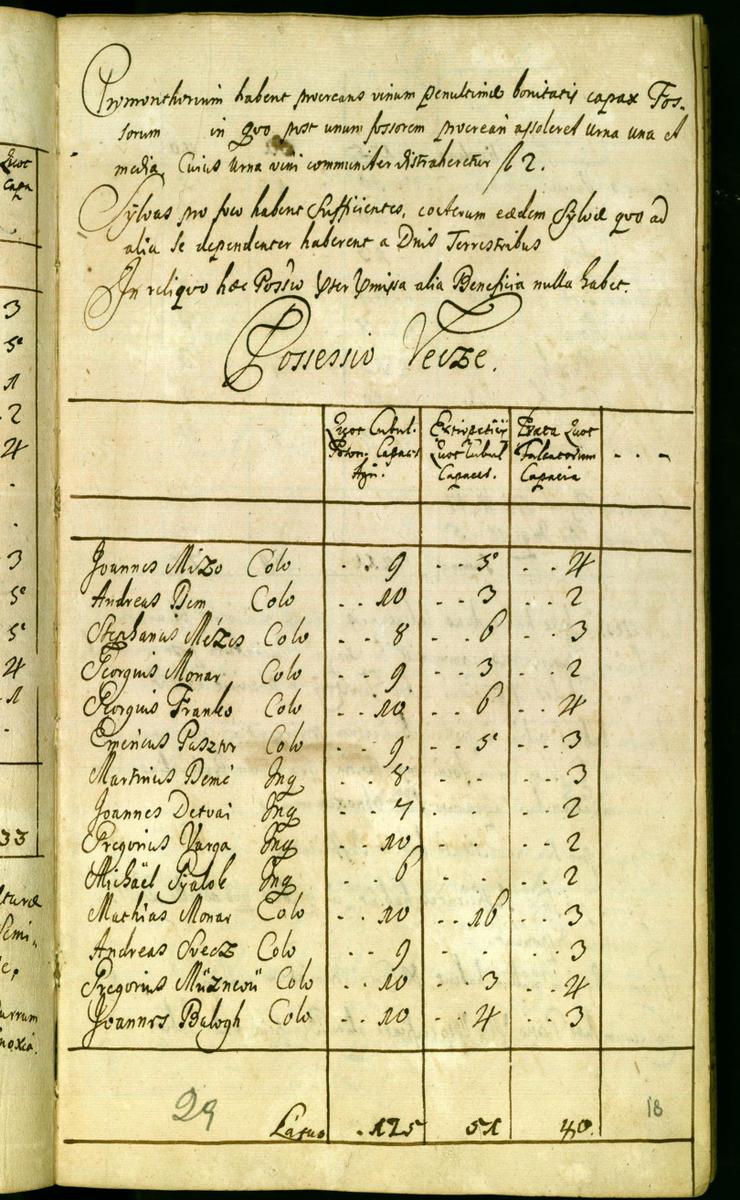 Promonthorium habent procreans vinum penultimæ bonitatis capax Fos-
sorum in quo post unum fossorem procreari assoleret Urna una et
media, Cuius Urna vini communiter distraheretur fl 2.
Sylvas pro foco habent sufficientes, cæterum eædem Sylvæ quo ad
alia se dependenter haberent a Dnis Terrestribus
In reliquo hæc Possio præter præmissa alia Beneficia nulla habet.
Possessio Vecze.
Quot Cubul. Extirpatitii Prata Quot
Poson. Capaces Quot Cubul Falcatorum
Agri. Capaces. Capacia
Joannes Mizo Colo . . 9 . . 5 . . 4
Andreas Dem Colo . . 10 . . 3 . . 2
Stephanus Mézes Colo . . 8 . . 6 . . 3
Georgius Monar Colo . . 9 . . 3 . . 2
Georgius Franko Colo . . 10 . . 6 . . 4
Emericus Pasztor Colo . . 9 . . 5 . . 3
Martinus Demé Inq . . 8 . . . . . 3
Joannes Detvai Inq . . 7 . . . . . 2
Gregorius Varga Inq . . 10 . . . . . 2
Michaël Gyalok Inq . . 6 . . . . . 2
Mathias Monar Colo . . 10 . . 16 . . 3
Andreas Svecz Colo . . 9 . . . . . 3
Gregorius Colo . . 10 . . 3 . . 4
Joannes Balogh Colo . . 10 . . 4 . . 3
29 18
Latus . 125 51 40.